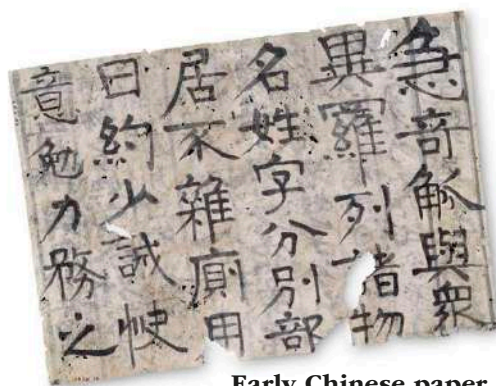 急奇觚與衆
異羅列諸物
名姓字分別部
居不雜廁用
日約少誠快
意勉力務之
Early Chinese paper